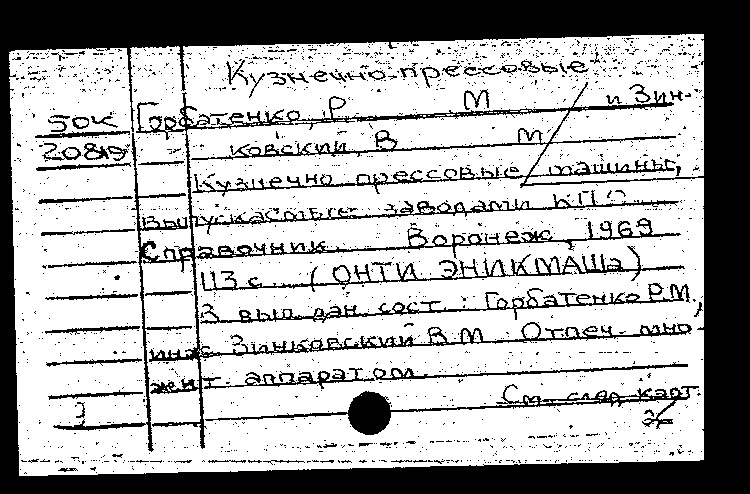 Кузнечно-прессовые
50К Горбатенко, Р. М и Зин-
20819 ковский, В М
Кузнечно прессовые машины,
выпускаемые заводами КПО
Справочник. Воронеж, 1969
113 с. (ОНТИ ЭНИКМАШа)
В вып. дан. сост.: Горбатенко Р.М,
инж Зинковский В.М. Отпеч. мно-
жит. аппаратом.
См. след карт